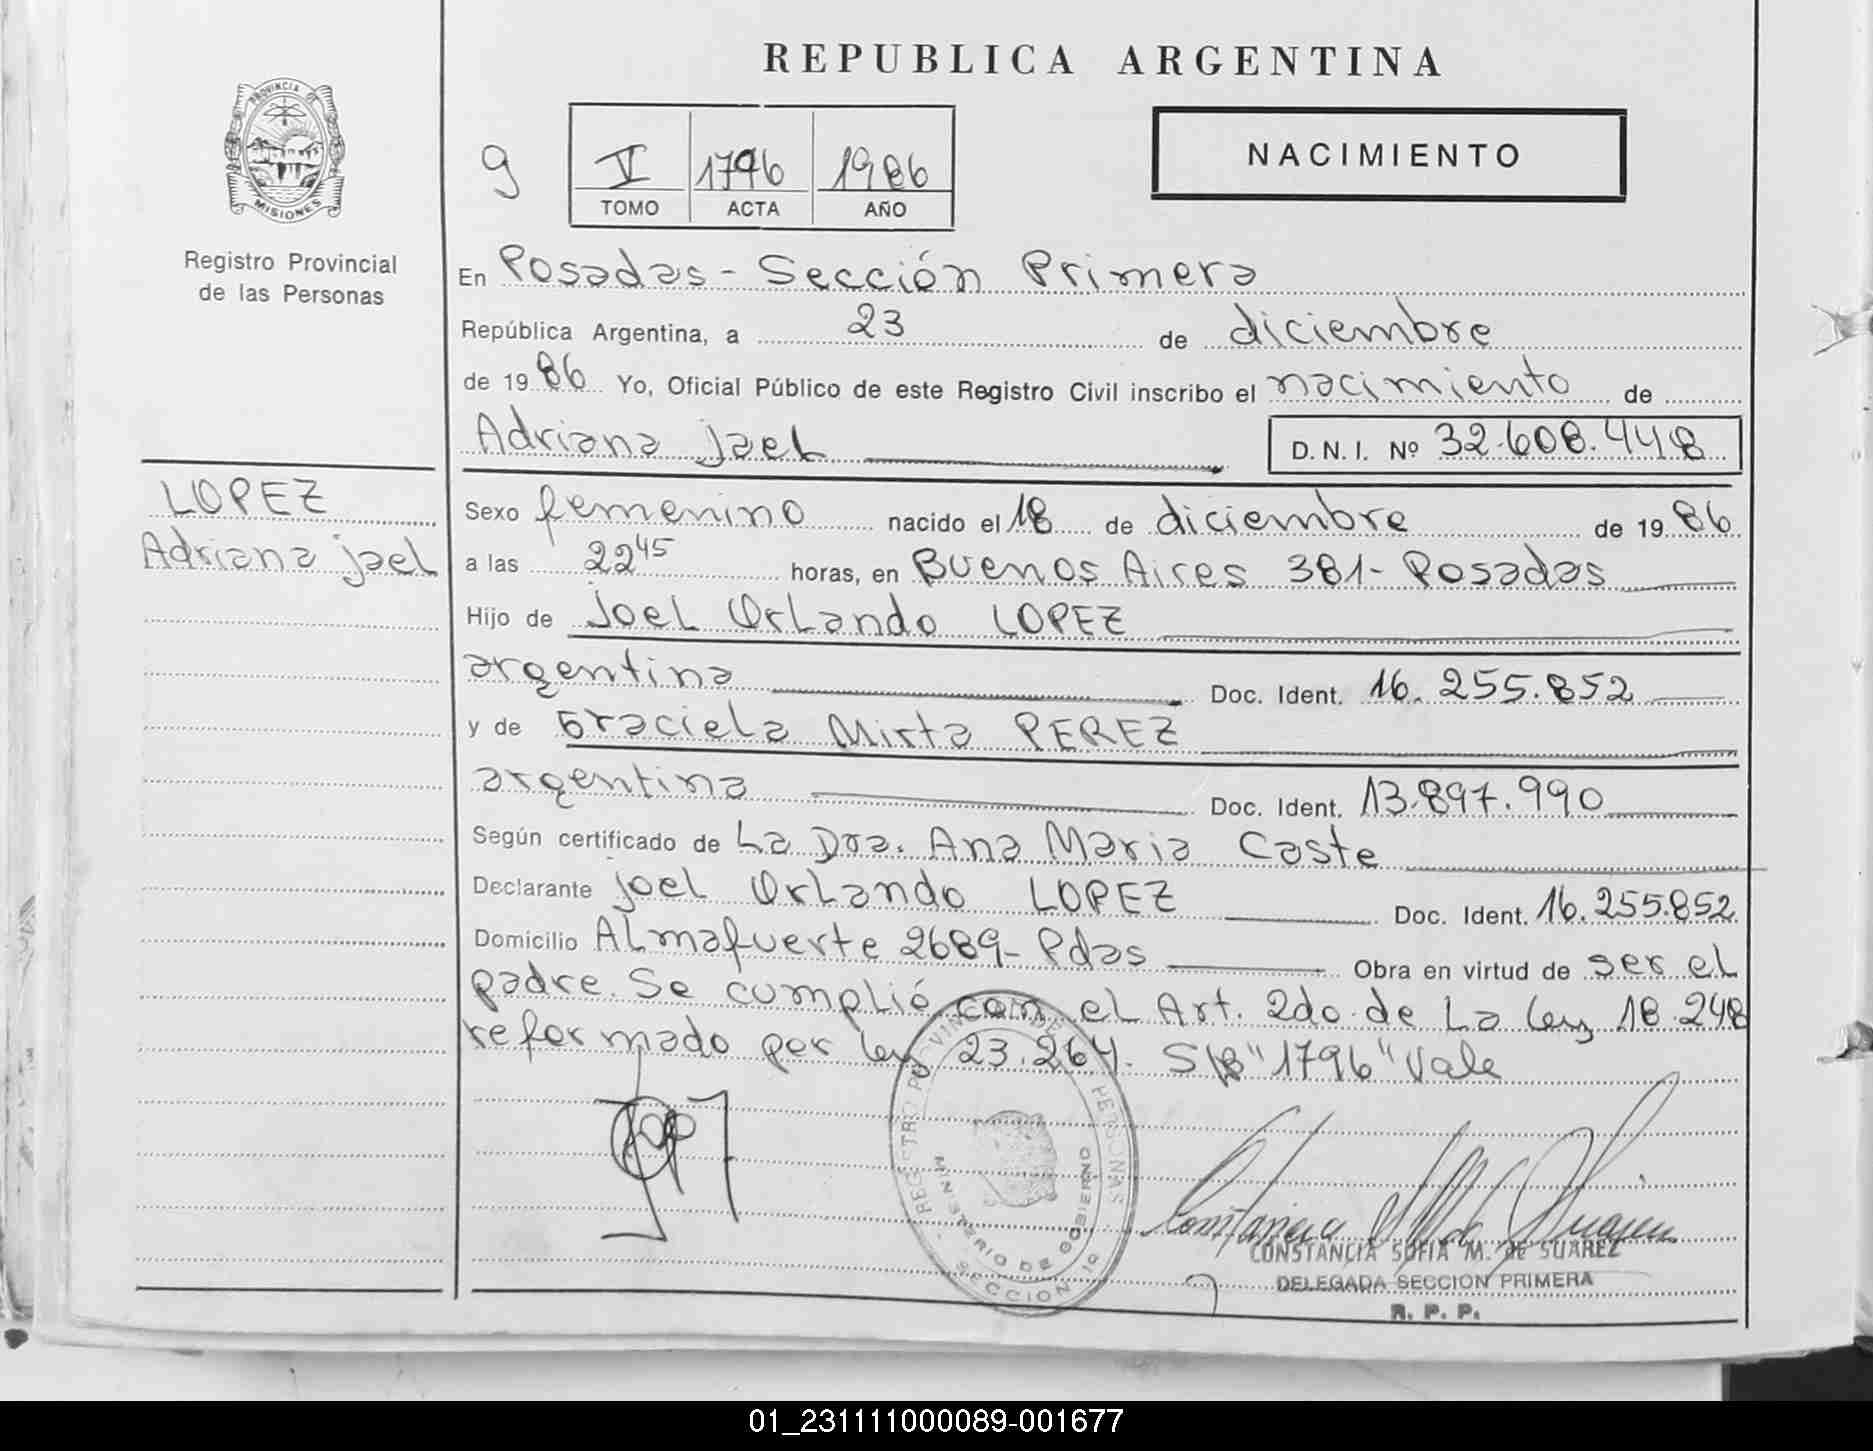 REPUBLICA ARGENTINA
PROVINCIA DE
MISIONES
Registro Provincial
de las Personas
9
V 1796 1986
TOMO ACTA AÑO
NACIMIENTO
En Posadas - Sección Primera
República Argentina, a 23 de diciembre
de 19 86 Yo, Oficial Público de este Registro Civil inscribo el nacimiento de
Adriana Jael D.N.I. Nº 32.608.448
LOPEZ
Adriana Jael
Sexo femenino nacido el 18 de diciembre de 19 86
a las 22 45 horas, en Buenos Aires 381- Posadas
Hijo de Joel Orlando LOPEZ
argentina Doc. Ident. 16.255.852
y de Graciela Mirta PEREZ
argentina Doc. Ident. 13.897.990
Según certificado de La Dra. Ana Maria Caste
Declarante Joel Orlando LOPEZ Doc. Ident. 16.255.852
Domicilio Almafuerte 2689- Pdas Obra en virtud de ser el
padre. Se cumplió con el Art. 2do. de La Ley 18.248
reformado por Ley 23.264. S/B "1796" Vale
REGISTRO PROVINCIAL DE PERSONAS
MINISTERIO DE GOBIERNO
SECCION 1º
CONSTANCIA SOFIA M. DE SUAREZ
DELEGADA SECCION PRIMERA
R. P. P.
01_231111000089-001677